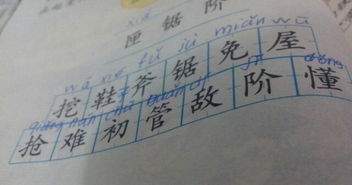 xiá
匣 锯 阶
wā xié fǔ jù miǎn wū
挖 鞋 斧 锯 免 屋
qiǎng nán chū guǎn dí dǒng
抢 难 初 管 敌 阶 懂